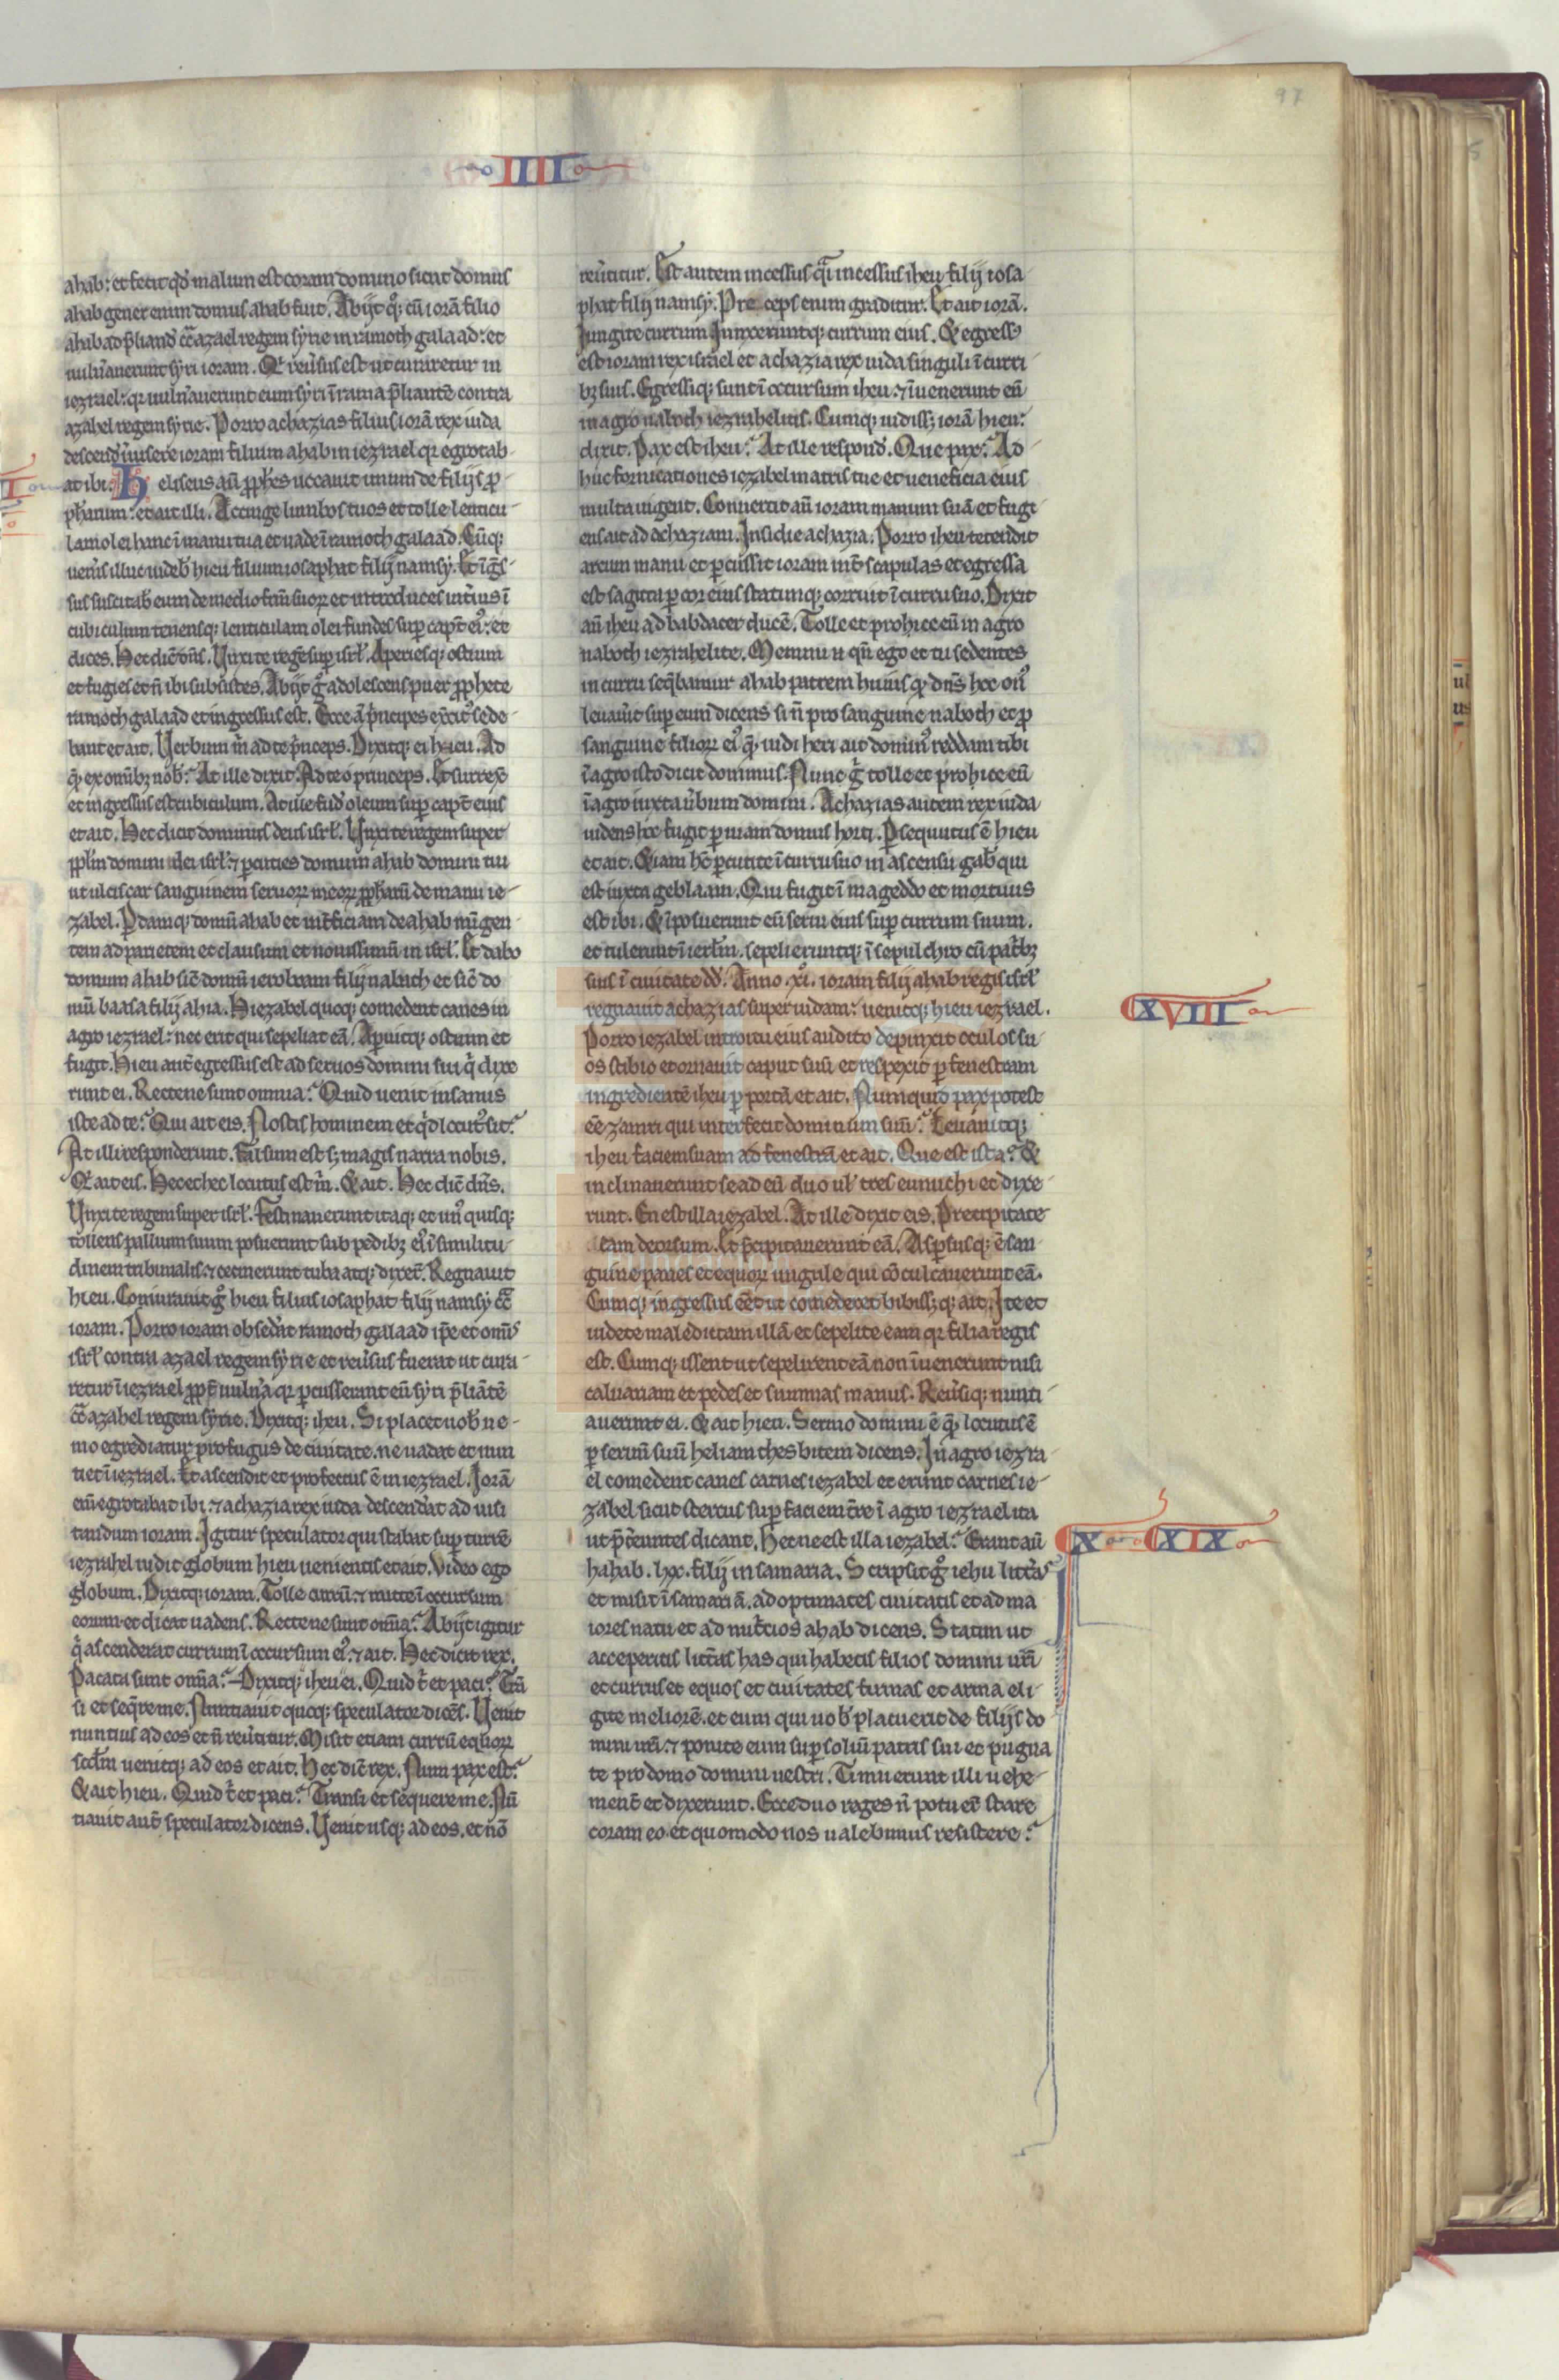 97
IIII
ahab: et fecit qd̕ malum est coram domino sicut domus
ahab gener enim domus ahab fuit. Abijt qͦ; cū iorā filio
ahab ad p̄liand̕ cͣ azael regem syrie in ramoth galaad: et
uuln̕auerunt syri ioram. Qͥ reu̕sus est ut curaretur in
iezrael: qr uuln̕auerunt eum syri ī rama p̄liantē contra
azahel regem syrie. Porro achazias filius iorā rex iuda
descend̕ inuisere ioram filium ahab in iezrael qr egrotab-
at ibi. Heliseus aū ꝓph̕es uocauit unum de filijs ꝓ-
phetarum: et ait illi. Accinge lumbos tuos et tolle lenticu-
lam olei hanc ī manu tua et uade ī ramoth galaad. Cūq;
uen̕is illuc uideb̕ hieu filium iosaphat filij namsy. Et īg̕s-
sus suscitab̕ eum de medio fr̄m suoꝝ et introduces int̕ius ī
cubiculum tenensq; lenticulam olei fundes suꝑ capt̕ ei᷒: et
dices. Hec dic̄ dn̄s. Unxi te regē suꝑ isrl̕. Aperiesq; ostium
et fugies et ñ ibi subsistes. Abijt gͦ adolescens puer ꝓphete
ramoth galaad et ingressus est. Ecce aū p̄ncipes ex̕cit᷒ sede-
bant et ait. Uerbum m̄ ad te p̄nceps. Dixitq; ei hieu. Ad
q̄ ex omīb; nob̕: At ille dixit. Ad te o princeps. Et surrex̄
et ingressus est cubiculum. At ille fud̕ oleum suꝑ capt̕ eius
et ait. Hec dicit dominus deus isrl̕. Unxi te regem super
ppl̄m domini dei isrl̕. ⁊ ꝑcuties domum ahab domini tui
ut ulciscar sanguinem seruoꝝ meoꝝ ꝓphetaꝝ de manu ie-
zabel. Ꝑdamq; domū ahab et int̕ficiam de ahab mīgen-
tem ad parietem et clausum et nouissimū in isrl̕. Et dabo
domum ahab sic̄ domū ieroboam filij nabath et sic̄ do
mū baasa filij ahia. Hiezabel quoq; comedent canes in
agro iezrael: nec erit qui sepeliat eā. Aꝑuitq; ostium et
fugit. Hieu aut̄ egressus est ad seruos domini sui q̄ dixe
runt ei. Recte ne sunt omnia: Quid uenit insanus
iste ad te: Qui ait eis. Nostis hominem et qͥd locut᷒ sit:
At illi responderunt. falsum est s; magis narra nobis.
Qͥ ait eis. Hec et hec locutus est m̄. & ait. Hec dic̄ dn̄s.
Unxi te regem super isrl̕. Festinauerunt itaq; et un᷒ quisq;
tollens pallium suum posuerunt sub pedib; ei᷒ ī similitu-
dinem tribunalis. ⁊ cecinerunt tuba atq; dixer̄. Regnauit
hieu. Coniurauit gͦ hieu filius iosaphat filij namsy cͣ
ioram. Porro ioram obsed̕at ramoth galaad ip̄e et omīs
isrl̕ contra azael regem syrie et reu̕sus fuerat ut cura-
retur ī iezrael ꝓpt̕ uuln̕a qr ꝑcusserant eū syri p̄liātē
cͣ azahel regem syrie. Dixitq; iheu. Si placet uob̕ ne-
mo egrediatur profugus de ciuitate. ne uadat et nun
tiet ī iezrael. Et ascendit et profectus ē in iezrael. Iorā
eī egrotabat ibi. ⁊ achazia rex iuda descend̕at ad uisi
tandum ioram. Igitur speculator qui stabat suꝑ turrē
iezrahel uidit globum hieu uenientis et ait. Video ego
globum. Dixitq; ioram. Tolle currū. ⁊ mitte ī occursum
eorum. et dicat uadens. Recte ne sunt omīa: Abijt igitur
qͥ ascenderat currum ī occursum ei᷒. ⁊ ait. Hec dicit rex.
Pacata sunt omīa: Dixitq; iheu ei. Quid t̕ et paci: Trā
si et seq̄re me. Nuntiauit quoq; speculator dicēs. Uenit
nuntius ad eos et ñ reu̕titur. Misit etiam currū equoꝝ
scd̄m uenitq; ad eos et ait. Hec dic̄ rex. Num pax est:
& ait hieu. Quid t̕ et paci: Transi et sequere me. Nū
tiauit aut̄ speculator dicens. Uenit usq; ad eos. et nō
reu̕titur. Est autem incessus qͣi incessus iheu filij iosa-
phat filij namsy. Pre ceps enim graditur. Et ait iorā.
Iungite currum Iunxeruntq; currum eius. & egress᷒
est ioram rex israel et achazia rex iuda singuli ī curri-
b; suis. Egressiq; sunt ī occursum iheu. ⁊ īuenerunt eū
in agro naboth iezrahelitis. Cumq; uidiss; iorā hieu:
dixit. Pax est iheu: At ille respond̕. Que pax: Ad-
huc fornicationes iezabel matris tue et ueneficia eius
multa uigent. Conuertit aū ioram manum suā et fugi
ens ait ad achaziam. Insidie achazia. Porro iheu tetendit
arcum manu et ꝑcussit ioram int̕ scapulas et egressa
est sagitta ꝑ cor eius statimq; corruit ī curru suo. Dixit
aū iheu ad babdacer ducē. Tolle et prohice eū in agro
naboth iezrahelite. Memini n̄ qn̄ ego et tu sedentes
in curru seq̄bamur ahab patrem huius qͩ dn̄s hoc on᷒
leuau̕it suꝑ eum dicens si ñ pro sanguine naboth et ꝓ
sanguine filioꝝ ei᷒ q̄ uidi heri ait domin᷒ reddam tibi
ī agro isto dicit dominus. Nunc gͦ tolle et prohice eū
ī agro iuxta u̕bum domini. Achazias autem rex iuda
uidens hoc fugit ꝑ uiam domus horti. Ꝑsequutus ē hieu
et ait. Etiam hc̄ ꝑcutite ī curru suo in ascensu gab̕ qui
est iuxta geblaam. Qui fugit ī mageddo et mortuus
est ibi. & īposuerunt eū serui eius suꝑ currum suum.
et tulerunt ī ierl̄m. sepelieruntq; ī sepulchro cū patrib;
suis ī ciuitate dd̕. Anno .xi. ioram filij ahab regis isrl̕
regnauit achazias super iudam: uenitq; hieu iezrael.
Porro iezabel introitu eius audito depinxit oculos su-
os stibio et ornauit caput suū et respexit ꝑ fenestram
ingredientē iheu ꝑ portā et ait. Numquid pax potest
eē zamri qui interfecit dominum suū: Leuauitq;
iheu faciem suam ad fenestrā et ait. Que est ista: &
inclinauerunt se ad eū duo ul̕ tres eunuchi et dixe-
runt. En est illa iezabel. At ille dixit eis. Precipitate
eam deorsum. Et p̄cipitauerunt eā. Asꝑsusq; ē san-
guine paries et equoꝝ ungule qui cōculcauerunt eā.
Cumq; ingressus eēt ut comederet bibiss;q; ait. Ite et
uidete maledictam illā et sepelite eam qr filia regis
est. Cumq; issent ut sepelirent eā non īuenerunt nisi
caluariam et pedes et summas manus. Reu̕siq; nunti-
auerunt ei. & ait hieu. Sermo domini ē q̄ locutus ē
ꝑ seruū suū heliam thesbitem dicens. In agro iezra-
el comedent canes carnes iezabel et erunt carnes ie-
zabel sicut stercus suꝑ faciem t̄re ī agro iezrael ita
ut p̄t̕euntes dicant. Heccine est illa iezabel: Erant aū
hahab .lxx. filij in samaria. Scripsit gͦ iehu litt̕as
et misit ī samariā. ad optimates ciuitatis et ad ma
iores natu et ad nut̕cios ahab dicens. Statim ut
acceperitis litt̕as has qui habetis filios domini ur̄i
et currus et equos et ciuitates firmas et arma eli-
gite meliorē. et eum qui uob̕ placuerit de filijs do-
mini ur̄i. ⁊ ponite eum suꝑ soliū patris sui et pugna
te pro domo domini uestri. Timuerunt illi uehe-
ment̕ et dixerunt. Ecce duo reges ñ potuer̄ stare
coram eo. et quomodo nos ualebimus resistere:
XVIII
X XIX